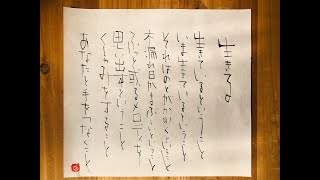 生きる。
生きているということ
いま生きているということ
それはのどがかわくということ
木漏れ日がまぶしいということ
ふっと或るメロディを
思い出すということ
くしゃみをすること
あなたと手をつなぐこと